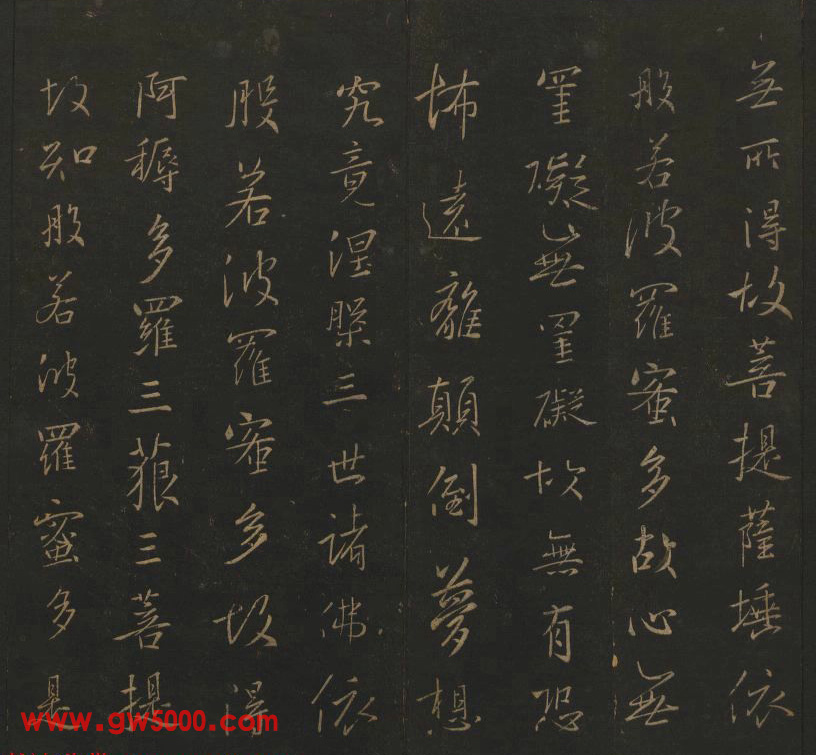 無所得故菩提薩埵依
般若波羅蜜多故心無
罣礙無罣礙故無有恐
怖遠離顛倒夢想
究竟涅槃三世諸佛依
般若波羅蜜多故得
阿耨多羅三藐三菩提
故知般若波羅蜜多是
www.gw5000.com